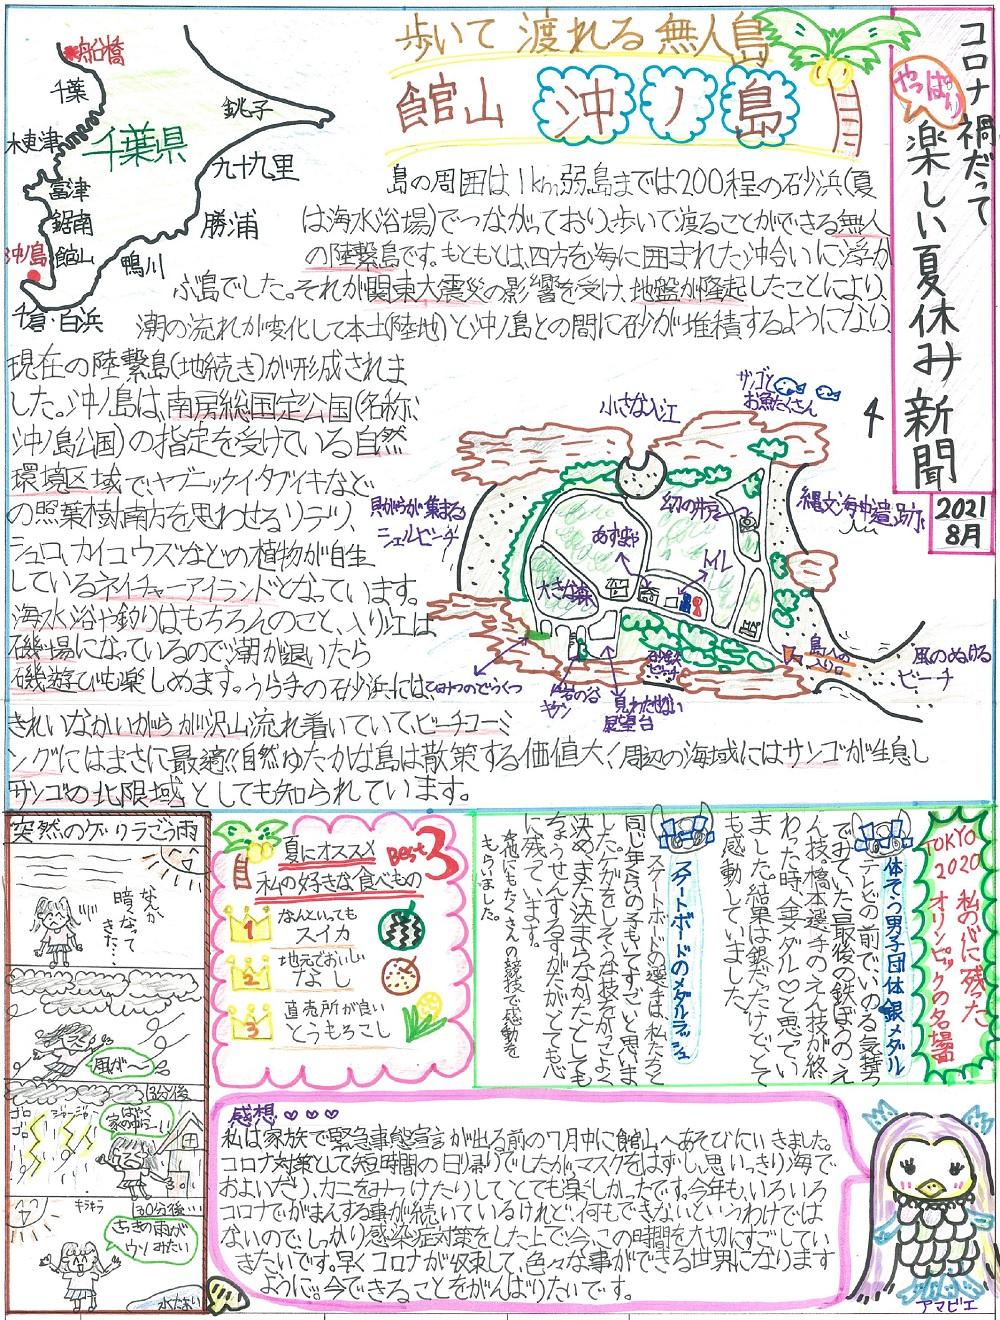 コロナ禍だって
やっぱり
楽しい夏休み新聞
2021
8月
歩いて渡れる無人島
館山 沖ノ島
船橋
千葉
木更津
千葉県
銚子
九十九里
富津
鋸南
勝浦
沖ノ島
館山
鴨川
千倉・白浜
島の周囲は1km弱島までは200程の砂浜(夏
は海水浴場)でつながっており、歩いて渡ることができる無人
の陸繋島です。もともとは、四方を海に囲まれた沖合いに浮か
ぶ島でした。それが関東大震災の影響を受け、地盤が隆起したことにより、
潮の流れが変化して本土(陸地)と沖ノ島との間に砂が堆積するようになり、
現在の陸繋島(地続き)が形成されま
した。沖ノ島は、南房総国定公園(名称、
沖ノ島公園)の指定を受けている自然
環境区域で、ヤブニッケイ・タブイキなど
の照葉樹、南方を思わせるソテツ、
シュロ、カイコウズなどの植物が自生
しているネイチャーアイランドとなっています。
海水浴や釣りはもちろんのこと、入り江は
磯場になっているので潮が退いたら
磯遊びも楽しめます。うら手の砂浜には、
きれいなかいがらが沢山流れ着いていて、ビーチコーミ
ングにはまさに最適!!自然ゆたかな島は散策する価値大!周辺の海域にはサンゴが生息し
サンゴの北限域としても知られています。
サンゴと
お魚たくさん
小さな入江
貝がらが集まる
シェルビーチ
幻の井戸
縄文海中遺跡
あずまや
トイレ
大きな森
島への
入り口
風のぬける
ビーチ
見わたせない
展望台
突然のゲリラごう雨
なんか
暗くなって
きた…
風が〜
3分後
ゴロゴロ
ジャージャー
はやく
家の中に〜!!
30分後…
キラキラ
さっきの雨が
ウソみたい
水たまり
夏にオススメ
Best3
私の好きな食べもの
1
なんといっても
スイカ
2
地元でおいしい
なし
3
直売所が良い
とうもろこし
TOKYO
2020
私の心に残った
オリンピックの名場面
体そう男子団体銀メダル
テレビの前でいのる気持ち
でみていた最後の鉄ぼうのえ
ん技。橋本選手のえん技が終
わった時、金メダル♡と思ってい
ました。結果は銀だったけどとて
も感動しました。
スケートボードのメダルラッシュ
スケートボードの選手は、私たちと
同じ年令の子もいてすごいと思いま
した。ケガをしそうな技をかっこよく
決め、また決まらなかったとしても
ちょうせんするすがたがとても心
に残っています。
☆他にもたくさんの競技で感動を
もらいました。
感想♡♡♡
私は家族で緊急事態宣言が出る前の7月中に館山へあそびにいきました。
コロナ対策として短時間の日帰りでしたが、マスクをはずし、思いっきり海で
およいだり、カニをみつけたりしてとても楽しかったです。今年も、いろいろ
コロナでがまんする事が続いているけれど、何もできないというわけでは
ないので、しっかり感染症対策をした上で、今、この時間を大切にすごしてい
きたいです。早くコロナが収束して、色々な事ができる世界になります
ように。今できることをがんばりたいです。
アマビエ